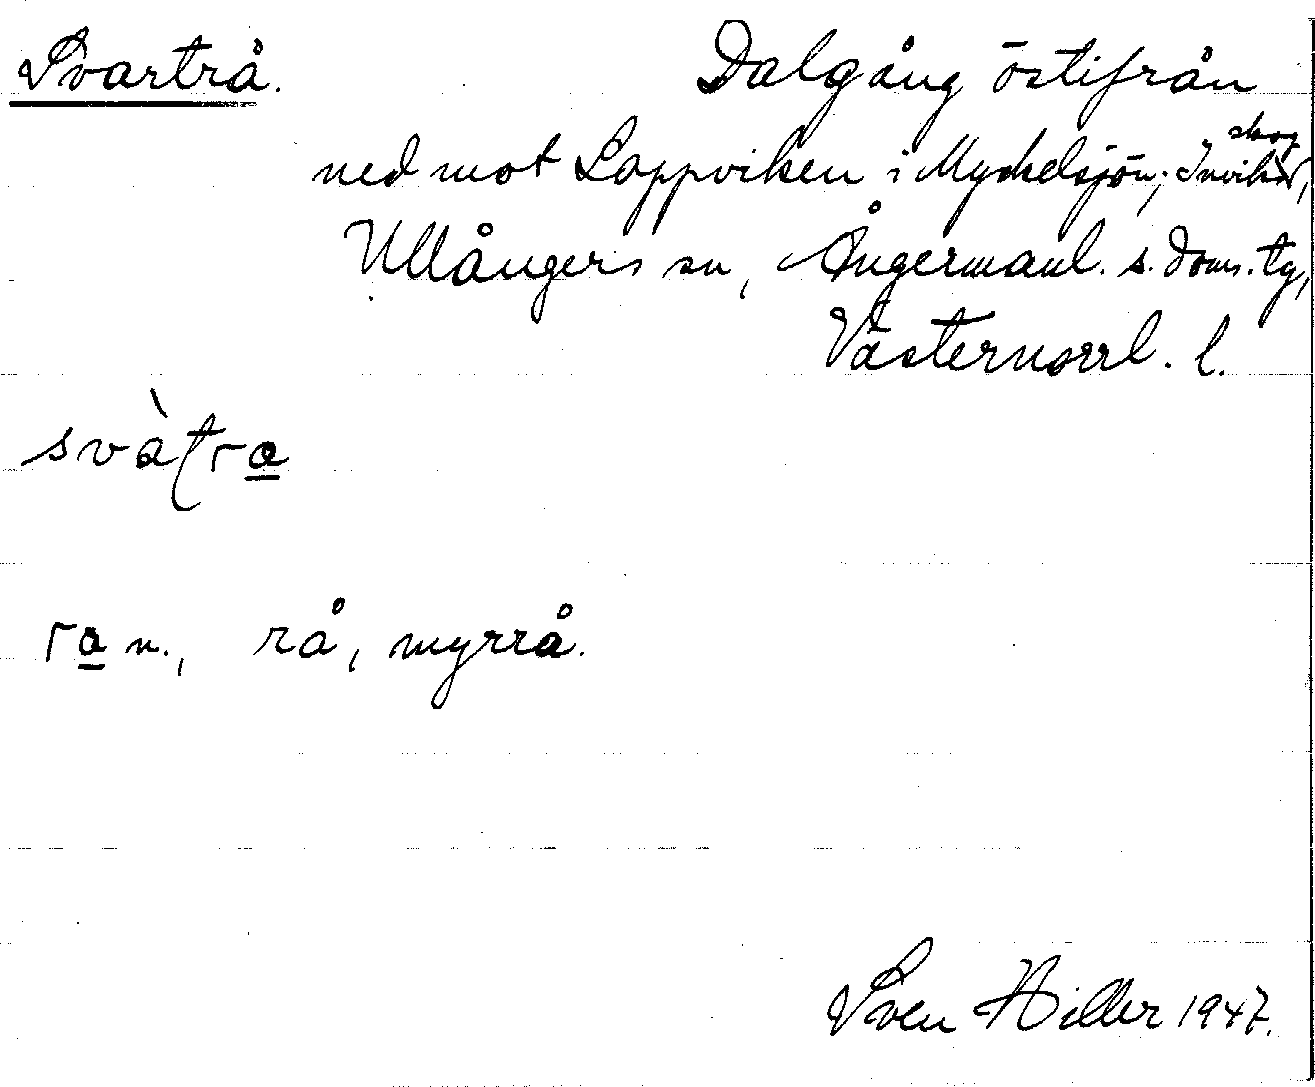 Svartrå. Dalgång östifrån
ned mot Lappviken i Myckelsjön; Inviks skog,
Ullångers sn, Ångermanl. s. doms. tg,
Västernorrl. l.
svàtra
ra n., rå, myrrå.
Sven Hiller 1947.